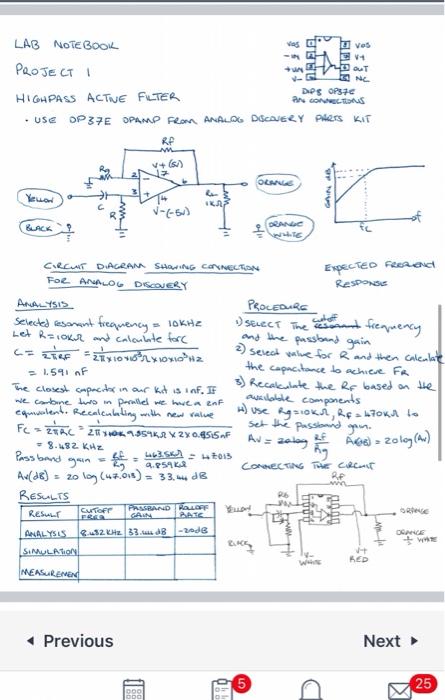 LAB NOTEBOOK
PROJECT 1
HIGHPASS ACTIVE FILTER
• USE OP37E OPAMP FROM ANALOG DISCOVERY PARTS KIT
VOS 1 8 VOS
-IN 2 7 V+
+IN 3 6 OUT
V- 4 5 NC
DIP8 OP37E
PIN CONNECTIONS
RF
V+ (5V)
Rg
2
7
6
3
4
V-(-5V)
C
R
RL
1KΩ
YELLOW
BLACK
ORANGE
ORANGE
WHITE
GAIN dB
f
fc
CIRCUIT DIAGRAM SHOWING CONNECTION
FOR ANALOG DISCOVERY
EXPECTED FREQUENCY
RESPONSE
ANALYSIS
Selected resonant frequency = 10KHz
Let R=10KΩ and calculate for C
C = 1/2πRF = 1/2πx10x10³Ωx10x10³Hz
= 1.591 nF
The closest capacitor in our kit is 1nF. If
we combine two in parallel we have a 2nF
equivalent. Recalculating with new value
FC = 1/2πRC = 1/2πx9.859KΩ x 2x0.9515nF
= 8.482 KHz
Passband gain = RF/Rg = 463.5KΩ/9.859KΩ = 47.013
Av(dB) = 20 log (47.013) = 33.44 dB
PROCEDURE
1) SELECT The cutoff frequency
and the passband gain
2) Select value for R and then calculate
the capacitance to achieve FR
3) Recalculate the RF based on the
available components
4) Use Rg=10KΩ, RF=470KΩ to
set the passband gain.
Av = RF/Rg Av(dB) = 20log(Av)
CONNECTING THE CIRCUIT
RF
YELLOW
BLACK
V-
WHITE
V+
RED
ORANGE
ORANGE
WHITE
RESULTS
RESULT CUTOFF FREQ PASSBAND GAIN ROLLOFF RATE
ANALYSIS 8.482 KHz 33.44 dB -20dB
SIMULATION
MEASUREMEN
Previous Next
5 25